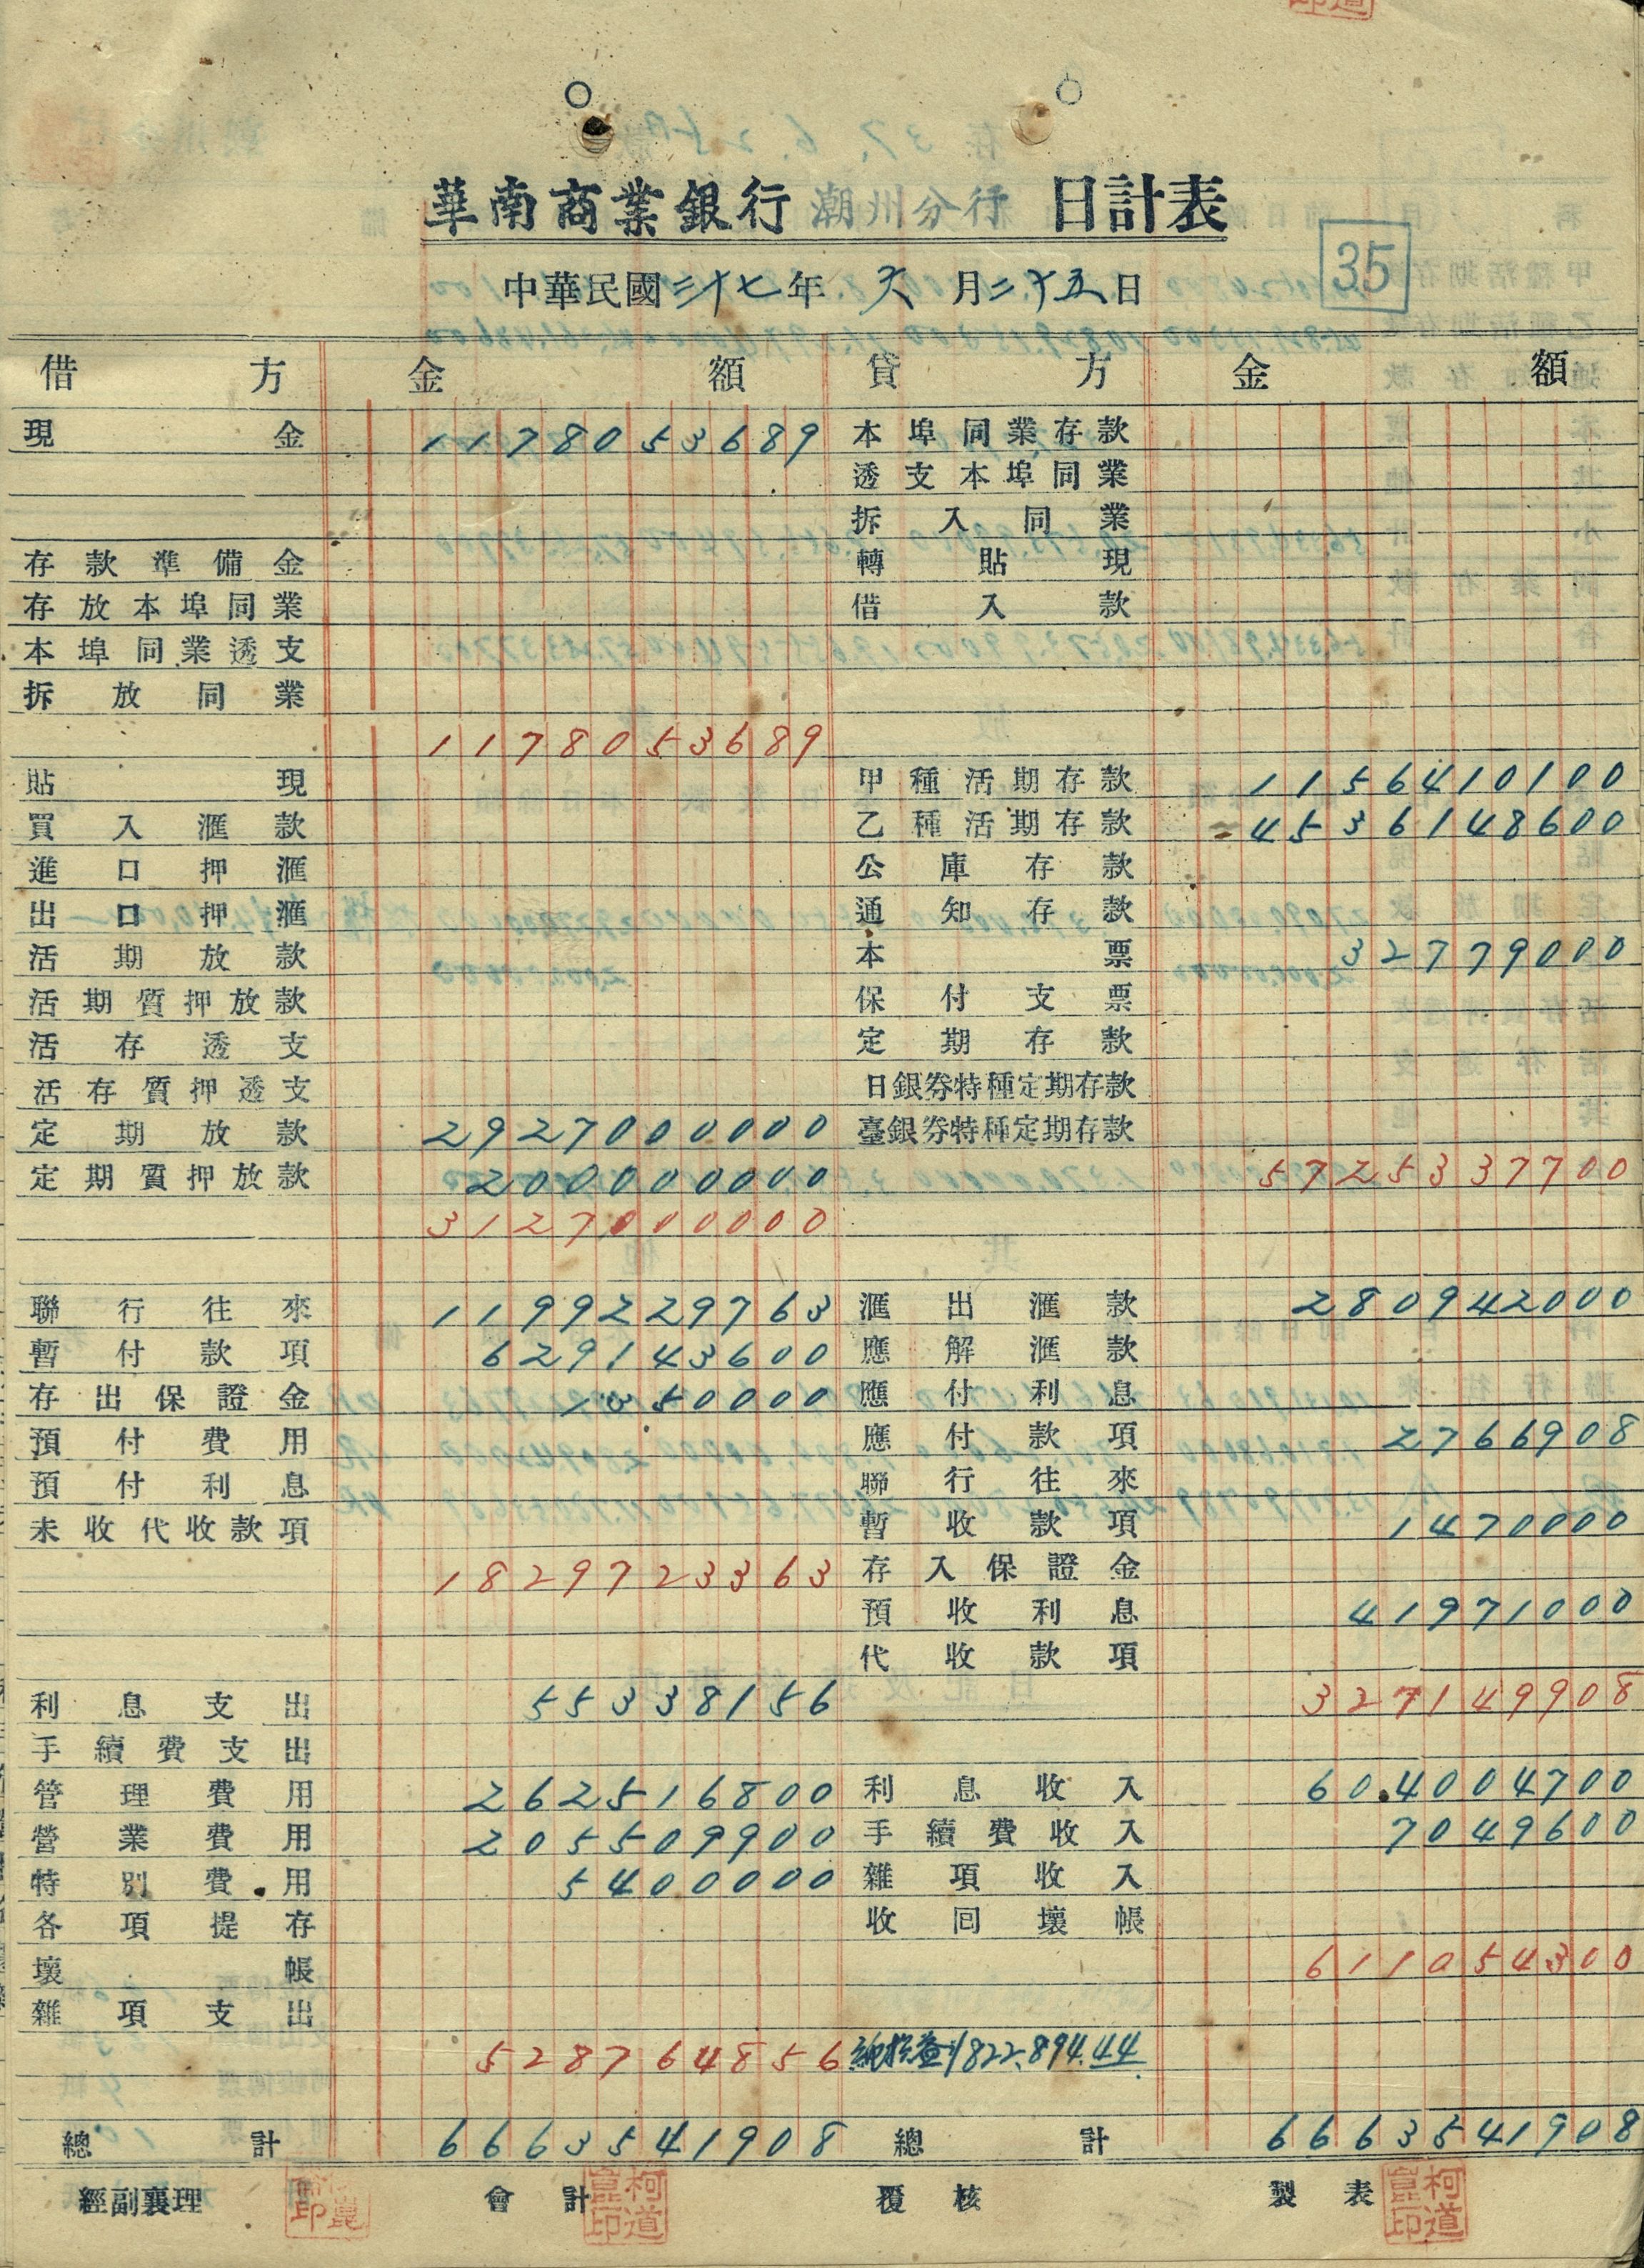 華南商業銀行 潮州分行 日計表
中華民國三十七年六月二十五日
35
借方 金額 貸方 金額
現金 1178053689 本埠同業存款
透支本埠同業
拆入同業
存款準備金 轉貼現
存放本埠同業 借入款
本埠同業透支
拆放同業
1178053689
貼現 甲種活期存款 1156410100
買入滙款 乙種活期存款 4536148600
進口押滙 公庫存款
出口押滙 通知存款
活期放款 本票 32779000
活期質押放款 保付支票
活存透支 定期存款
活存質押透支 日銀券特種定期存款
定期放款 2927000000 臺銀券特種定期存款
定期質押放款 200000000 5725337700
3127000000
聯行往來 1199229763 滙出滙款 280942000
暫付款項 629143600 應解滙款
存出保證金 1350000 應付利息
預付費用 應付款項 2766908
預付利息 聯行往來
未收代收款項 暫收款項 1470000
1829723363 存入保證金
預收利息 41971000
代收款項
利息支出 55338156 327149908
手續費支出
管理費用 262516800 利息收入 604004700
營業費用 205509900 手續費收入 7049600
特別費用 5400000 雜項收入
各項提存 收回壞帳
壞帳 611054300
雜項支出
528764856 純損益$822,894.44
總計 6663541908 總計 6663541908
經副襄理 會計 覆核 製表
柯道崑印 柯道崑印